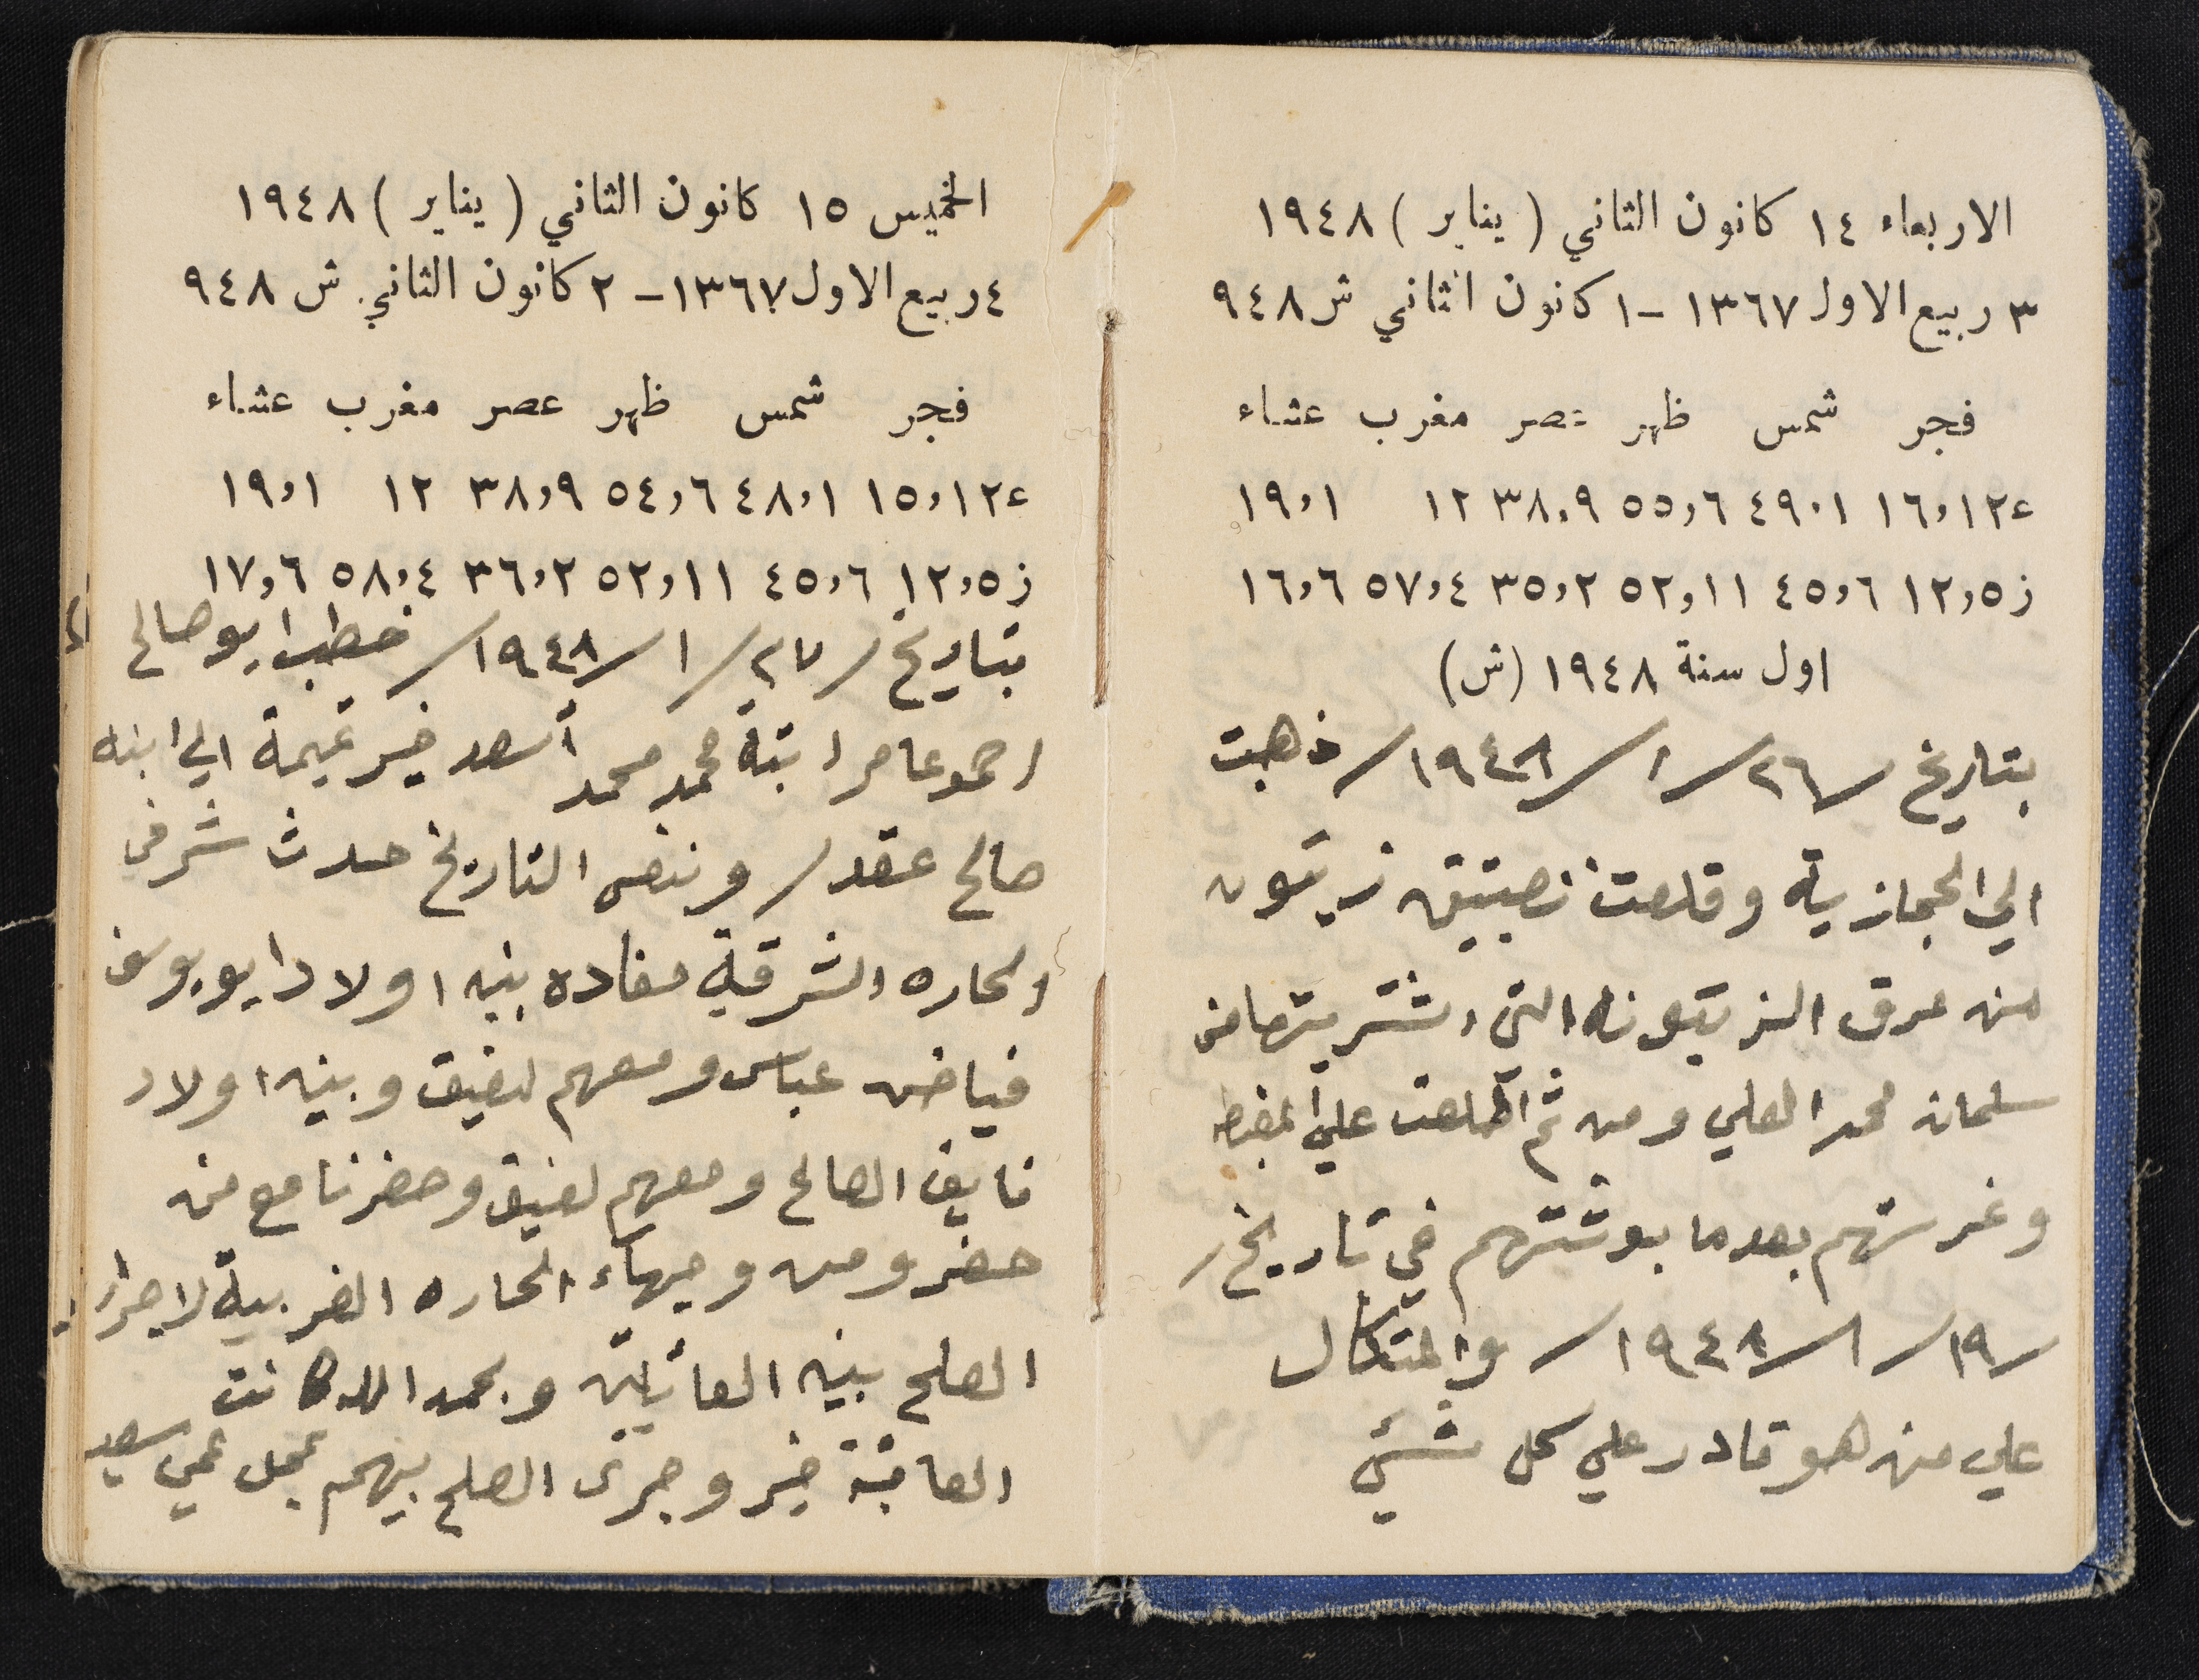 الاربعاء ١٤ كانون الثاني ( يناير ) ١٩٤٨
٣ ربيع الاول ١٣٦٧ - ١ كانون الثاني ش ٩٤٨
فجر شمس ظهر عصر مغرب عشاء
ع ١٦,١٢ ٤٩,١ ٥٥,٦ ٣٨,٩ ١٢ ١٩,١
ز ١٢,٥ ٤٥,٦ ٥٢,١١ ٣٥,٢ ٥٧,٤ ١٦,٦
اول سنة ١٩٤٨ (ش)
بتاريخ /٢٦/ ١/ ١٩٤٨/ ذهبت
الي الحجازية وقلعت نصبتين زيتون
من عرق الزيتونه التي اشتريتها من
سلمان محمد العلي ومن ثم اطلعت علي
وغرستهم بعدما بوشتهم في تاريخ /
/١٩/ ١/ ١٩٤٨/ والمتكال
علي من هو قادر علي كل شئي
الخميس ١٥ كانون الثاني ( يناير ) ١٩٤٨
٤ ربيع الاول ١٣٦٧ - ٢ كانون الثاني ش ٩٤٨
فجر شمس ظهر عصر مغرب عشاء
ع ١٥,١٢ ٤٨,١ ٥٤,٦ ٣٨,٩ ١٢ ١٩,١
ز ١٢,٥ ٤٥,٦ ٥٢,١١ ٣٦,٢ ٥٨,٤ ١٧,٦
بتاريخ /٢٧/ ١/ ١٩٤٨/ خطب ابو صالح
عامر ابنة محمد محمد أسعد الي ابنه
صالح عقد/ وبنفس التاريخ حدث شر في
الحاره الشرقية مفاده بين اولاد ابو يوسف
فياض عباس ومعهم لفيف وبين اولاد
نايف الصالح ومعهم لفيف وحضرنا مع من
حضر ومن وجهاء الحاره الغربية لاجراء
الصلح بين العائلتين وبحمد الله كانت
العاقبة خير وجرى الصلح بينهم بمحل عمي سعيد